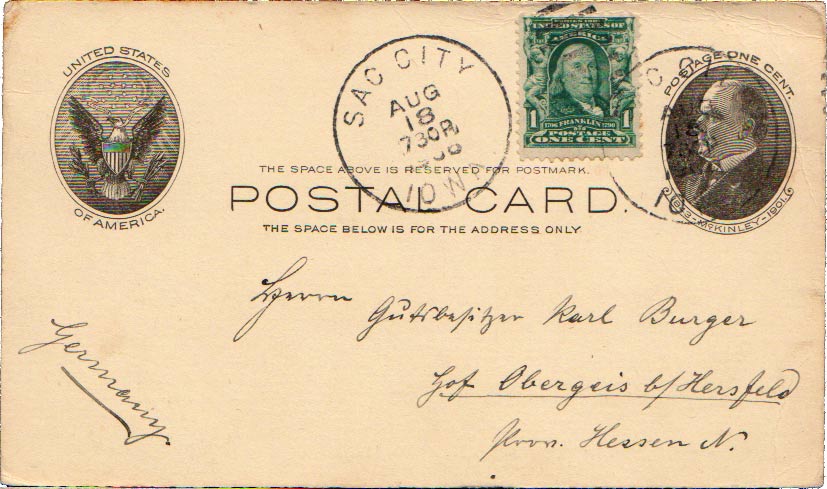 UNITED STATES
OF AMERICA.
SAC CITY
AUG
18
730P
IOWA
UNITED STATES OF
AMERICA
1 1
1706 FRANKLIN 1790
POSTAGE
ONE CENT
POSTAGE ONE CENT.
1843-McKINLEY-1901.
THE SPACE ABOVE IS RESERVED FOR POSTMARK.
POSTAL CARD.
THE SPACE BELOW IS FOR THE ADDRESS ONLY
Herrn
Gutsbesitzer Karl Burger
Hof Obergeis b/Hersfeld
Prov. Hessen N.
Germany